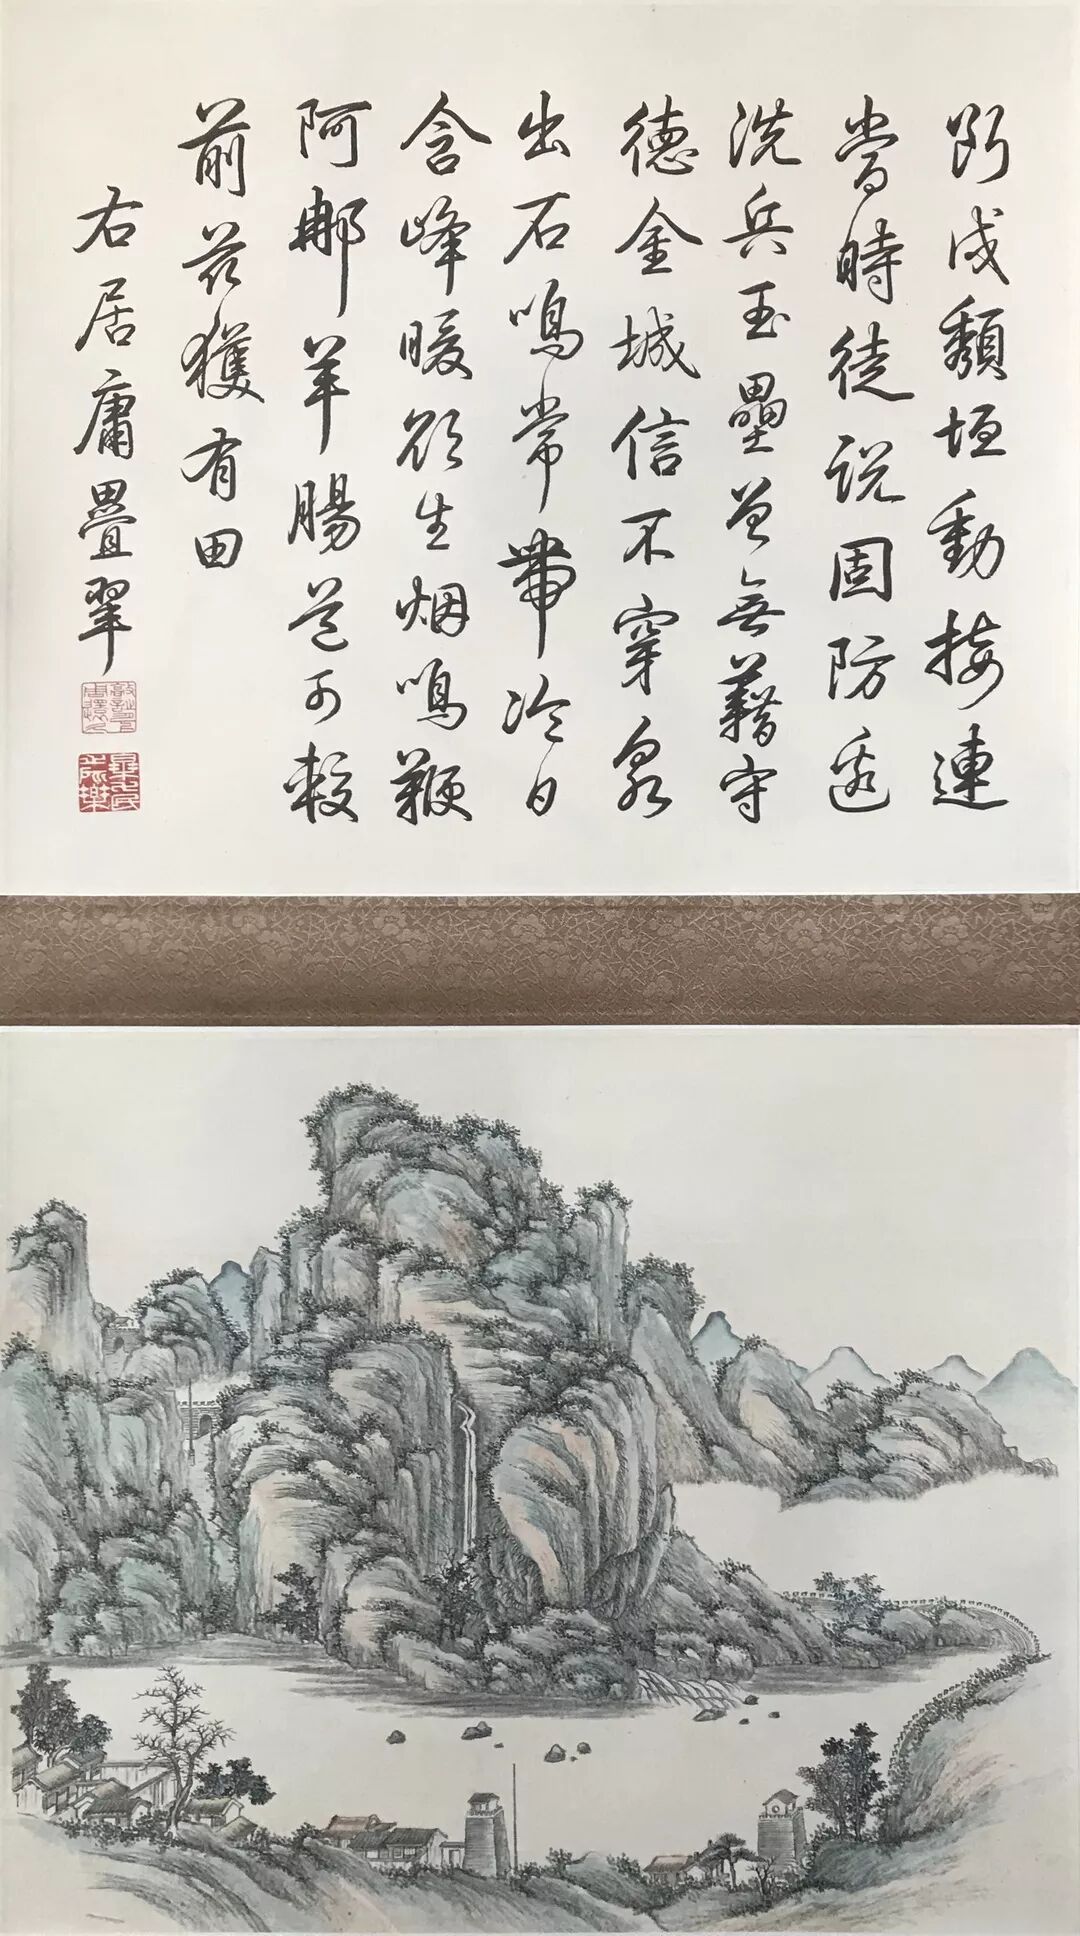 斷戍頽垣動接連
當時徒説固防邊
洗兵玉壘曾無藉守
德金城信不穿泉
出石鳴常帶冷日
含峰暖欲生烟鳴鞭
阿那羊腸道可較
前兹獲有田
右居庸疊翠